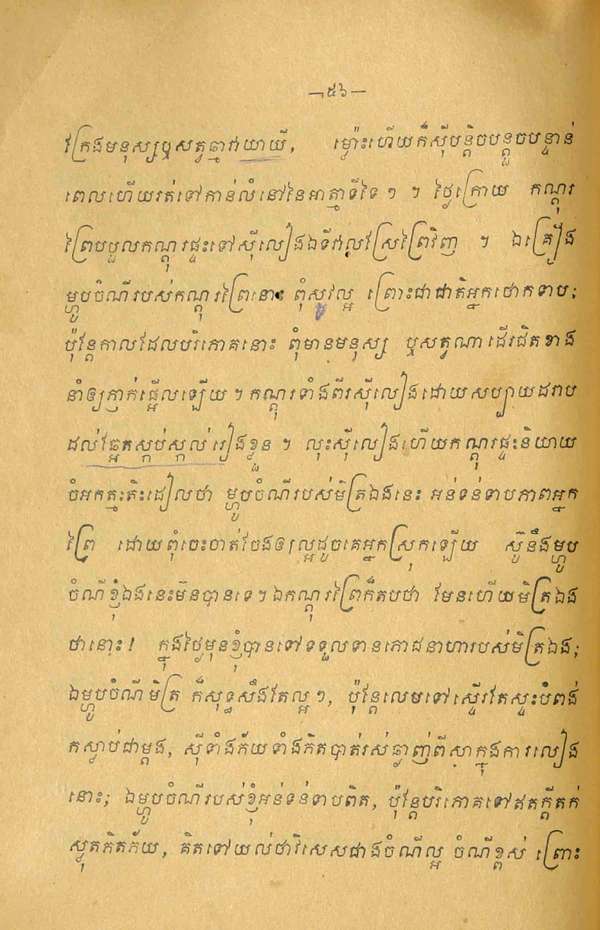 —៥៦—
ក្រែងមនុស្សឬសត្វឆ្មាវ៉យាយី, ម្ល៉ោះហើយក៏ស៊ីបន្តិចបន្តួចបន្ទាន់
ពេលហើយរត់ទៅកាន់លំនៅនៃអាត្មាទីទៃៗ ។ ថ្ងៃក្រោយ កណ្ដុរ
ព្រៃបបួលកណ្ដុរផ្ទះទៅស៊ីលៀងឯទីវាលស្រែព្រៃវិញ ។ ឯគ្រឿង
ម្ហូបចំណីរបស់កណ្ដុរព្រៃនោះ ពុំសូវល្អ ព្រោះជាជាតិអ្នកថោកទាប;
ប៉ុន្តែកាលដែលបរិភោគនោះ ពុំមានមនុស្ស ឬសត្វណាដើរជិតខាង
នាំឲ្យភ្ញាក់ផ្អើលឡើយ ។ កណ្ដុរទាំងពីរស៊ីលៀងដោយសប្បាយដរាប
ដល់ឆ្អែតស្កប់ស្កល់រៀងខ្លួន ។ លុះស៊ីលៀងហើយកណ្ដុរផ្ទះនិយាយ
ចំអកត្មះតិះដៀលថា ម្ហូបចំណីរបស់មិត្រឯងនេះ អន់ទន់ទាបភាពអ្នក
ព្រៃ ដោយពុំចេះចាត់ចែងឲ្យល្អដូចគេអ្នកស្រុកឡើយ ស៊ូនឹងម្ហូប
ចំណីខ្ញុំឯងនេះម៊នបានទេ ។ ឯកណ្ដុរព្រៃក៏តបថា មែនហើយមិត្រឯង
ថានោះ! ក្នុងថ្ងៃមុនខ្ញុំបានទៅទទួលទានភោជនាហារបស់មិត្រឯង;
ឯម្ហូបចំណីមិត្រ ក៏សុទ្ធសឹងតែល្អៗ, ប៉ុន្តែលេមទៅស្ទើរតែស្ទះបំពង់
កស្លាប់ជាម្ដង, ស៊ីទាំងភ័យទាំងភិតបាត់រស់ឆ្ងាញ់ពីសាក្នុងការលៀង
នោះ; ឯម្ហូបចំណីរបស់ខ្ញុំអន់ទន់ទាបពិត, ប៉ុន្តែបរិភោគទៅឥតក្ដីតក់
ស្លុតភិតភ័យ, គិតទៅយល់ថាវិសេសជាងចំណីល្អ ចំណីខ្ពស់ ព្រោះ